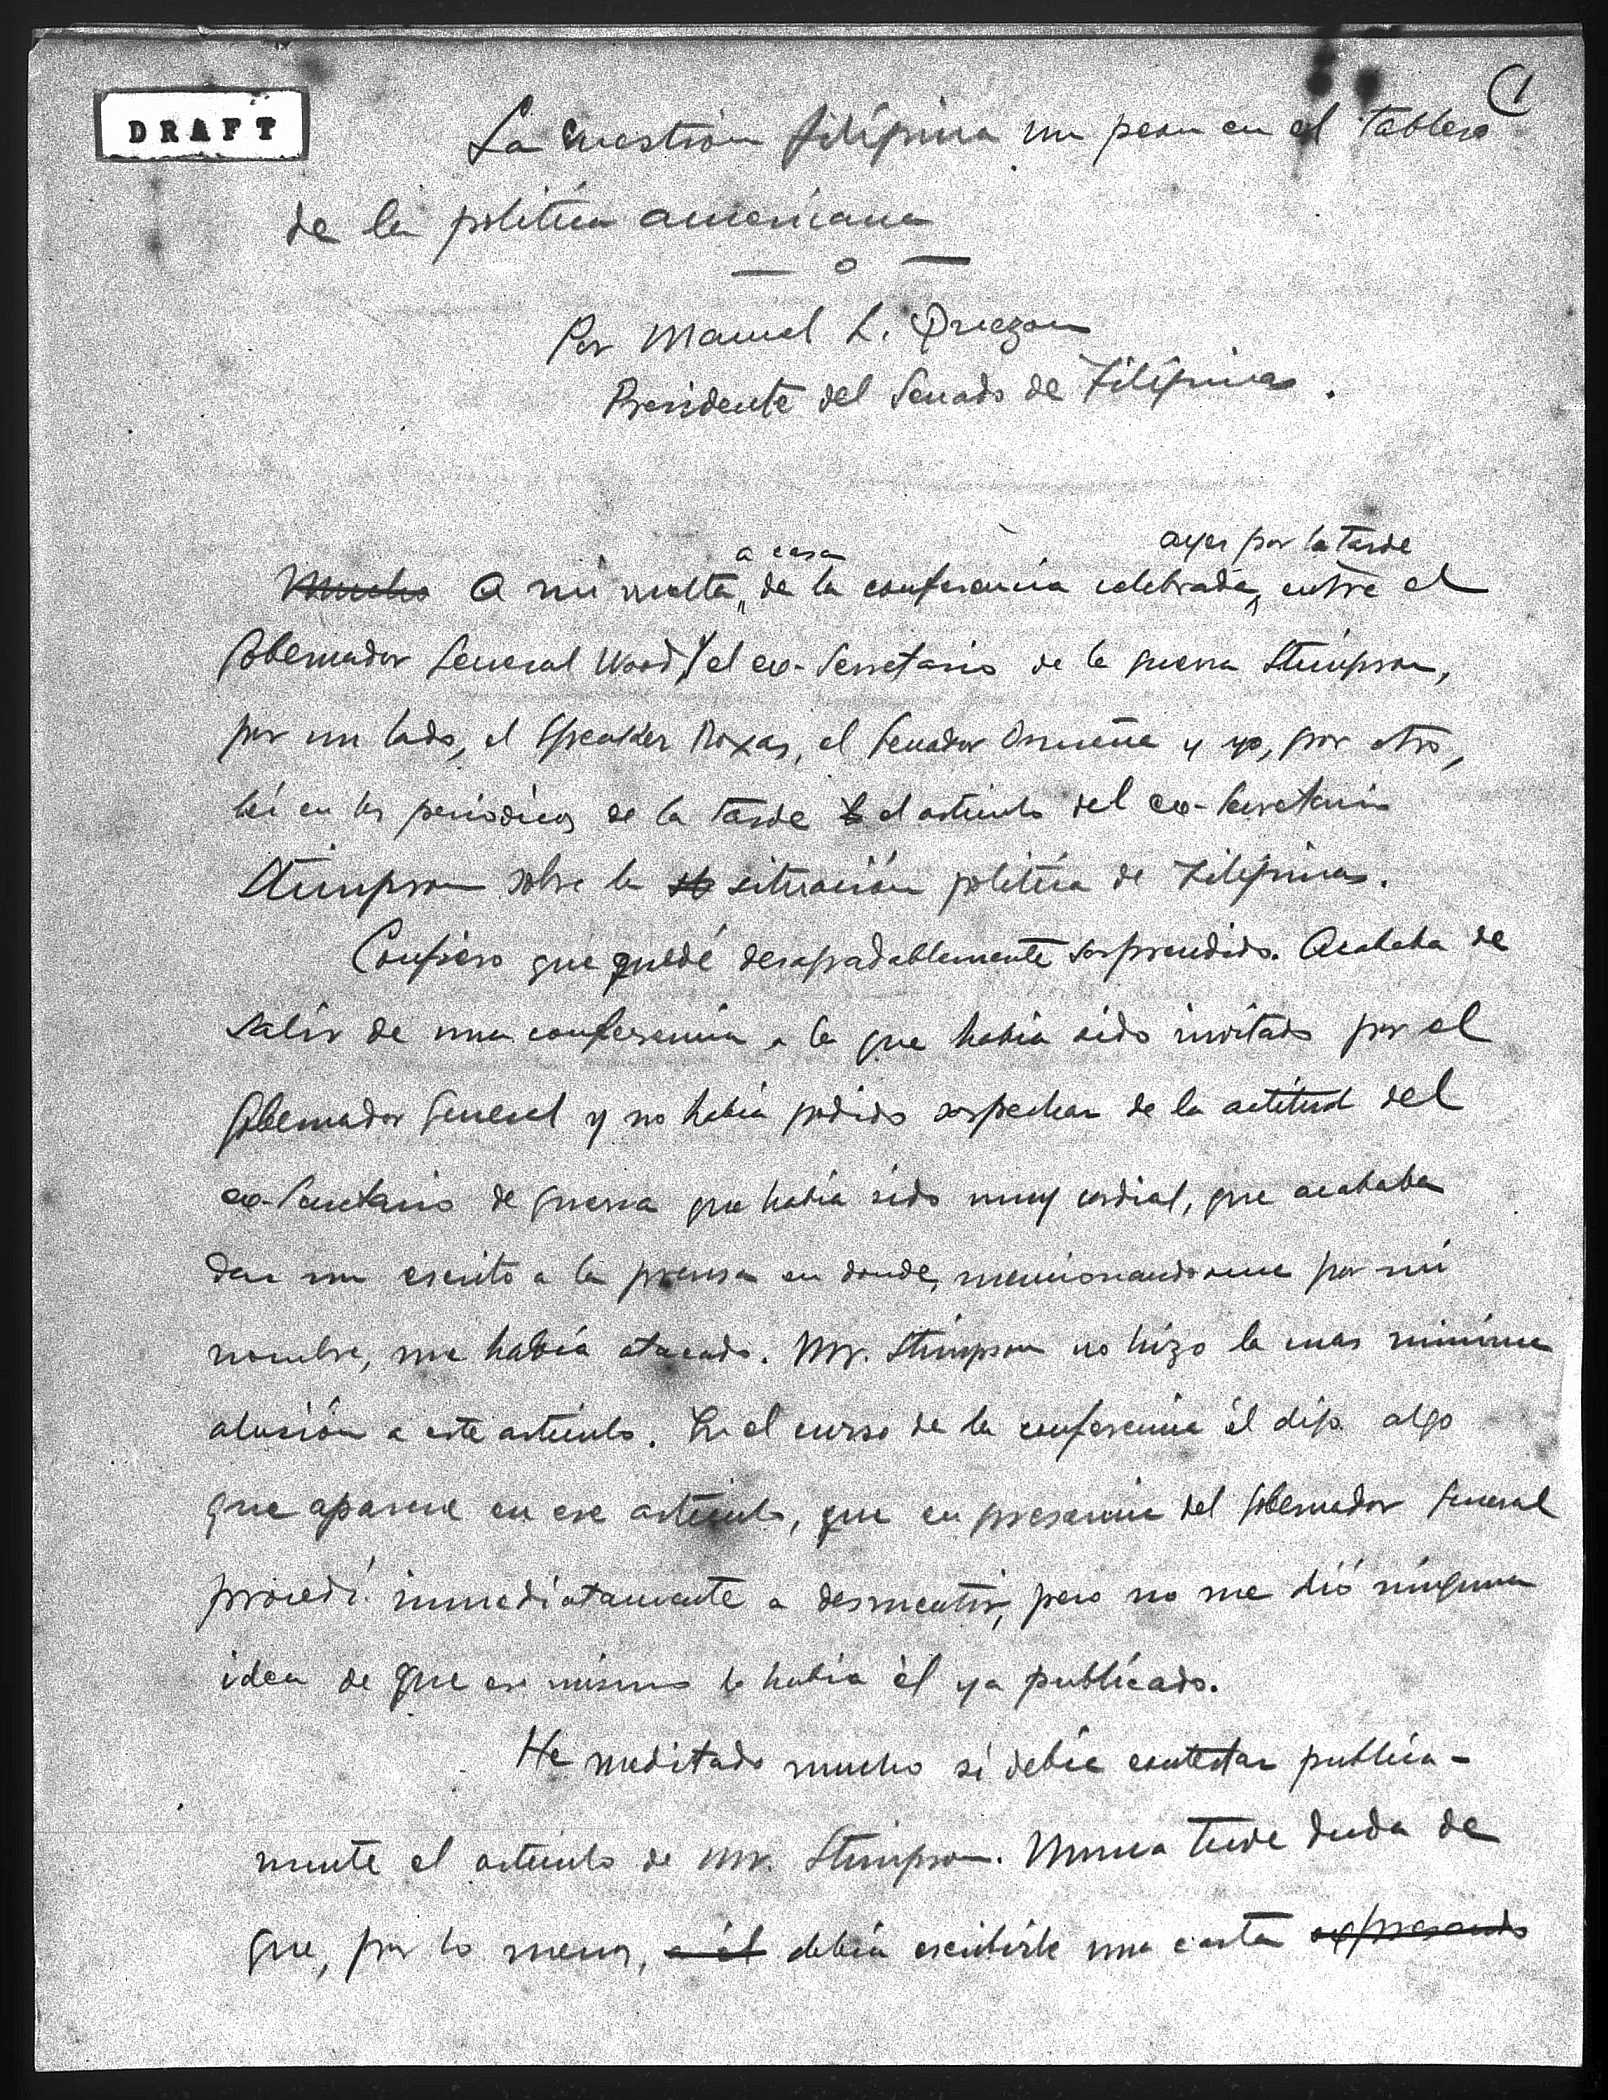 1
DRAFT
La cuestión filipina un peon en el tablero
de la política americana
— o —
Por Manuel L. Quezon
Presidente del Senado de Filipinas.
a casa
ayer por la tarde
Mucho A mi vuelta de la conferencia celebrada, entre el
Gobernador General Wood y el ex-Secretario de la guerra Stimpson,
por un lado, el Speaker Roxas, el Senador Osmeña y yo, por otro,
leí en los periódicos de la tarde el artículo del ex-Secretario
Stimpson sobre la situación política de Filipinas.
Confieso que quedé desagradablemente sorprendido. Acababa de
salir de una conferencia a la que había sido invitado por el
Gobernador General y no había podido sospechar de la actitud del
ex-Secretario de guerra que había sido muy cordial, que acababa
dar un escrito a la prensa en donde, mencionandome por mi
nombre, me había atacado. Mr. Stimpson no hizo la mas mínima
alusión a este artículo. En el curso de la conferencia él dijo algo
que aparece en ese artículo, que en presencia del Gobernador General
procedí inmediatamente a desmentir, pero no me dió ninguna
idea de que eso mismo lo había él ya publicado.
He meditado mucho si debía contestar publica-
mente el artículo de Mr. Stimpson. Nunca tuve duda de
que, por lo menos, a él debía escribirle una carta expresando